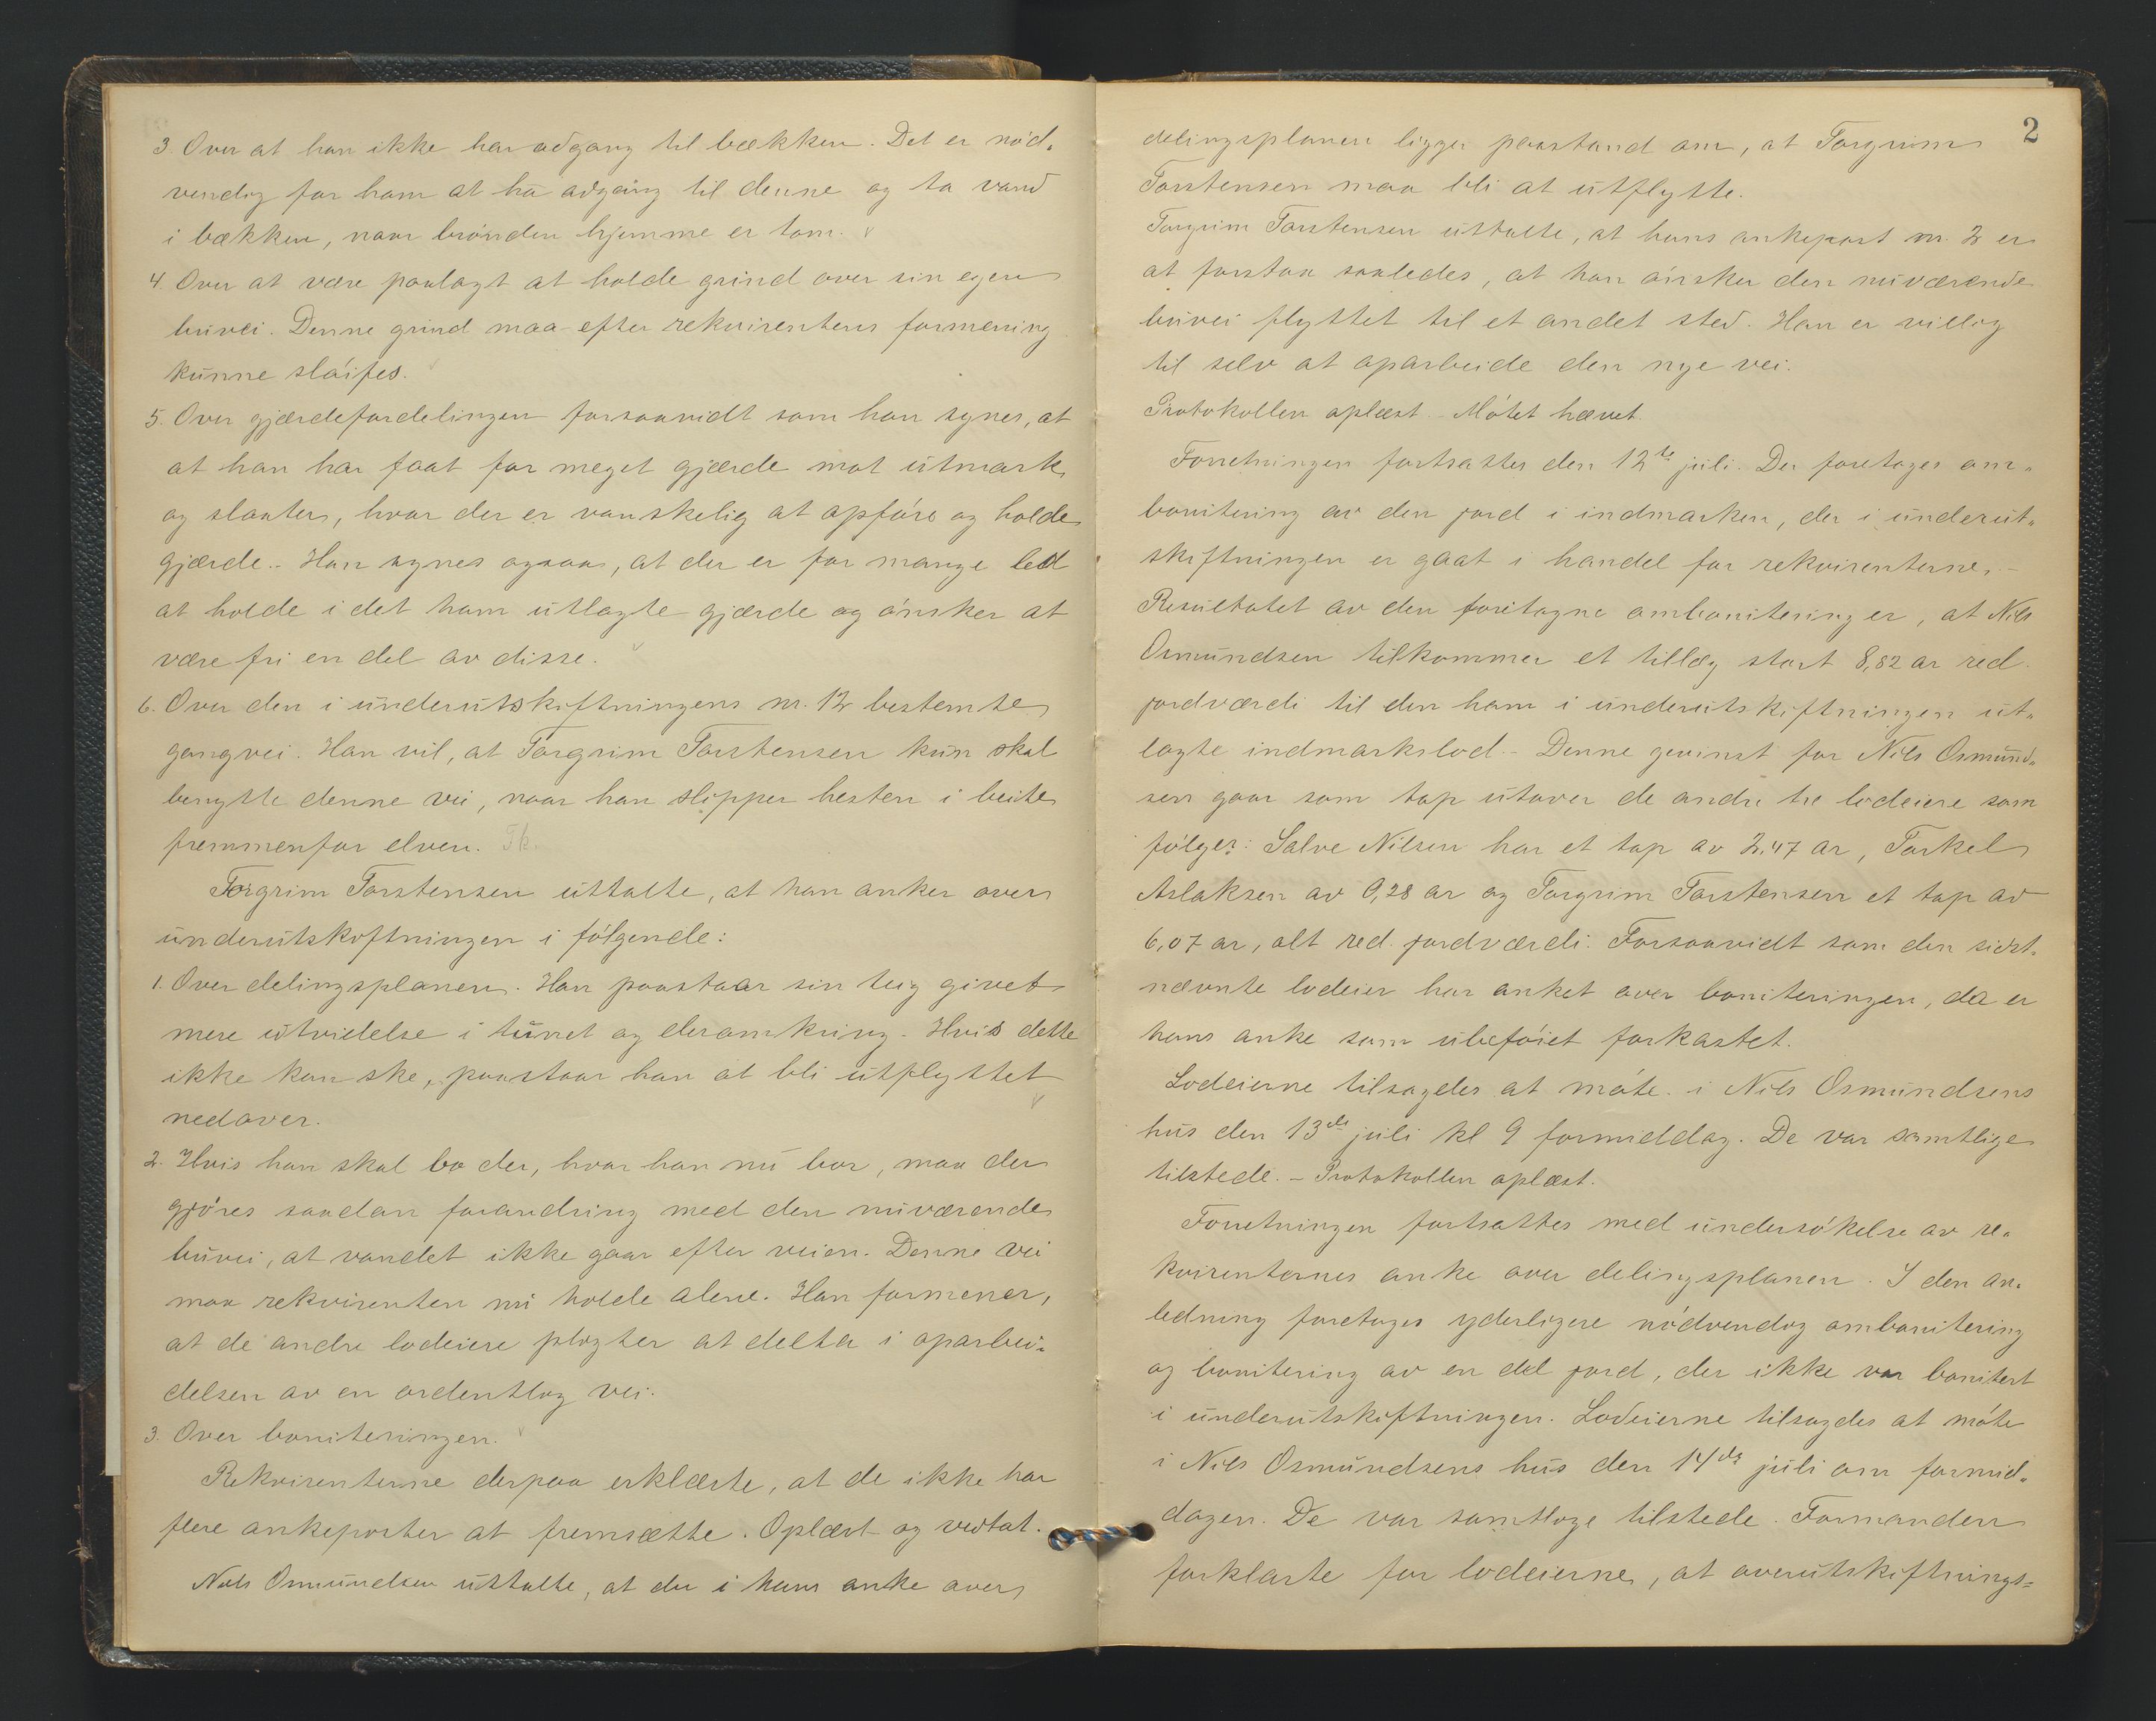 3. Over at han ikke har adgang til bækken. Det er nød-
vendig for ham at ha adgang til denne og ta vand
i bækken, naar brønden hjemme er tom.
4. Over at være paalagt at holde grind over sin egen
buvei. Denne grind maa efter rekvirentens formening
kunne sløifes.
5. Over gjærdefordelingen forsaavidt som han synes, at
at han har faat for meget gjærde mot utmark
og slaatter, hvor der er vanskelig at opføre og holde
gjærde. - Han synes ogsaa, at der er for mange led
at holde i det ham utlagte gjærde og ønsker at
være fri en del av disse.
6. Over den i underutskiftningens nr. 12 bestemte
gangvei. Han vil, at Torgrim Torstensen kun skal
benytte denne vei, naar han slipper hesten i beite
fremmenfor elven. T.k.
Torgrim Torstensen uttalte, at han anker over
underutskiftningen i følgende:
1. Over delingsplanen. Han paastaar sin teig givet
mere utvidelse i tunet og deromkring. Hvis dette
ikke kan ske, paastaar han at bli utflyttet
nedover.
2. Hvis han skal bo der, hvor han nu bor, maa der
gjøres saadan forandring med den nuværende
buvei, at vandet ikke gaar efter veien. Denne vei
maa rekvirenten nu holde alene. Han formener,
at de andre lodeiere pligter at delta i oparbei-
delsen av en ordentlig vei.
3. Over boniteringen.
Rekvirenterne derpaa erklærte, at de ikke har
flere ankeposter at fremsætte. Oplæst og vedtat.
Nils Osmundsen uttalte, at der i hans anke over
2
delingsplanen ligger paastand om, at Torgrim
Torstensen maa bli at utflytte.
Torgrim Torstensen uttalte, at hans ankepost nr. 2 er
at forstaa saaledes, at han ønsker den nuværende
buvei flyttet til et andet sted. Han er villig
til selv at oparbeide den nye vei.
Protokollen oplæst. Møtet hævet.
Forretningen fortsattes den 12te juli. Der foretages om-
bonitering av den jord i indmarken, der i underut-
skiftningen er gaat i handel for rekvirenterne. -
Resultatet av den foretagne ombonitering er, at Nils
Osmundsen tilkommer et tillæg stort 8,82 ar red.
jordværdi til den ham i underutskiftningen ut-
lagte indmarkslod. - Denne gevinst for Nils Osmund-
sen gaar som tap utover de andre tre lodeiere som
følger: Salve Nilsen har et tap av 2,47 ar, Torkel
Aslaksen av 0,28 ar og Torgrim Torstensen et tap av
6,07 ar, alt red. jordværdi. Forsaavidt som den sidst-
nævnte lodeier har anket over boniteringen, da er
hans anke som ubeføiet forkastet.
Lodeierne tilsagdes at møte i Nils Osmundsens
hus den 13de juli kl 9 formiddag. De var samtlige
tilstede. - Protokollen oplæst.
Forretningen fortsattes med undersøkelse av re-
kvirenternes anke over delingsplanen. I den an-
ledning foretages yderligere nødvendig ombonitering
og bonitering av en del jord, der ikke var bonitert
i underutskiftningen. Lodeierne tilsagdes at møte
i Nils Osmundsens hus den 14de juli om formid-
dagen. De var samtlige tilstede. Formanden
forklarte for lodeierne, at overutskiftnings-